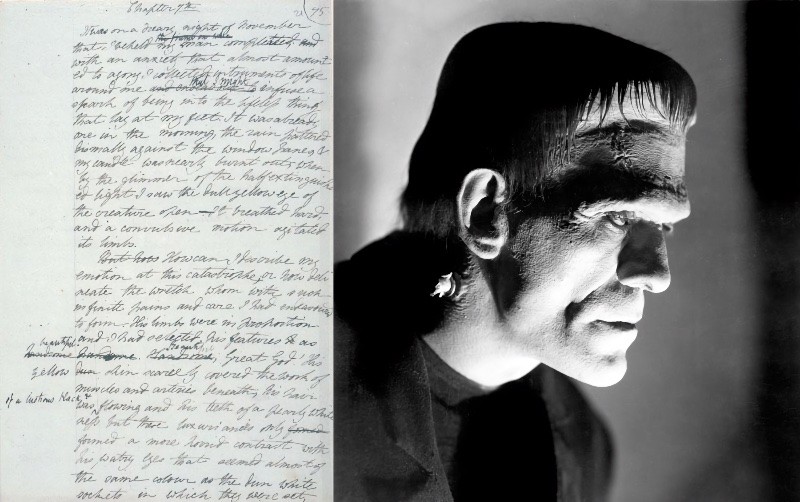 Chapter 7th
75
It was on a dreary night of November
that I beheld my man compleated and
with an anxiety that almost amount
ed to agony I collected instruments of life
around me that I might infuse a
spark of being into the lifeless thing
that lay at my feet. It was already
one in the morning, the rain pattered
dismally against the window panes, &
my candle was nearly burnt out, when
by the glimmer of the half extinguish
ed light I saw the dull yellow eye of
the creature open — It breathed hard,
and a convulsive motion agitated
its limbs.
But how How can I describe my
emotion at this catastrophe; or how deli
neate the wretch whom with such
infinite pains and care I had endeavoured
to form. His limbs were in proportion
and I had selected his features as
beautiful
handsome Handsome, Great God! His
yellow skin scarcely covered the work of
muscles and arteries beneath; his hair
of a lustrous black, &
was flowing and his teeth of a pearly white
ness but these luxuriancies only
formed a more horrid contrast with
his watry eyes that seemed almost of
the same colour as the dun white
sockets in which they were set,